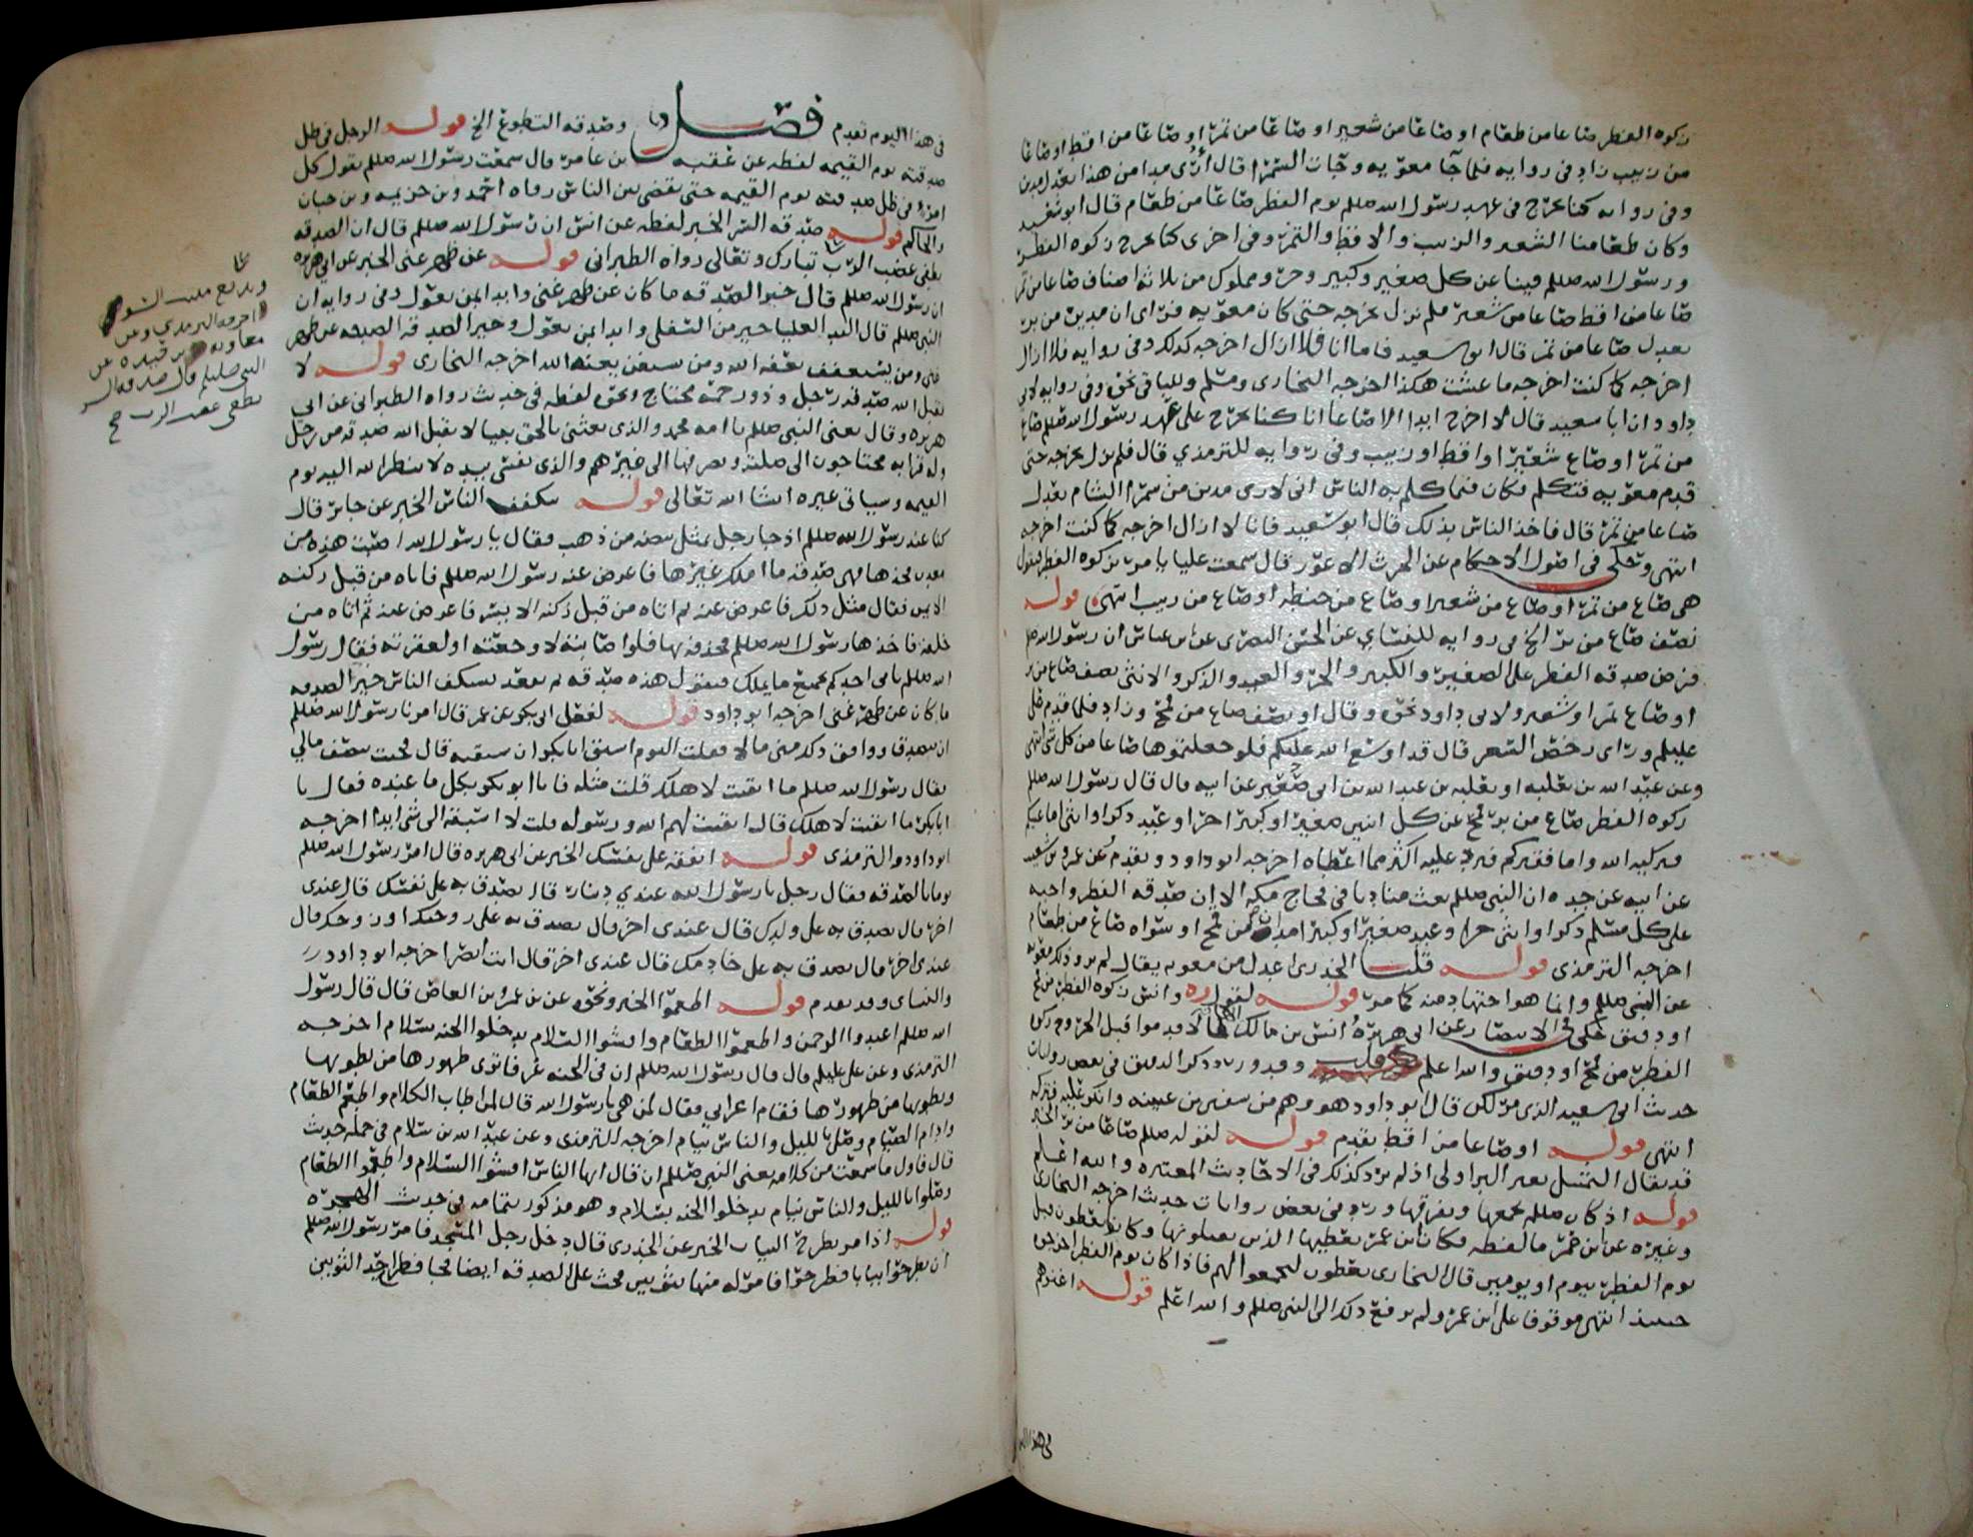 زكوه الفطر صاعا من طعام او صاعا من شعير او صاعا من تمر او صاعا من اقط او صاعا
من زبيب زاد فى روايه فلما جا معويه وجات السمرا قال ارى مدا من هذا يعدل مدين
وفى روايه كنا نخرج فى عهد رسول الله صللم يوم الفطر صاعا من طعام قال ابو سعيد
وكان طعامنا الشعير والزبيب والاقط والتمر وفى اخرى كنا نخرج زكوه الفطر
ورسول الله صللم فينا عن كل صغير وكبير وحر ومملوك من ثلاثه اصناف صاعا من تمر
صاعا من اقط صاعا من شعير فلم نزل نخرجه حتى كان معويه فراى ان مدين من بر
يعدل صاعا من تمر قال ابو سعيد فاما انا فلا ازال اخرجه كذلك وفى روايه فلا ازال
اخرجه كما كنت اخرجه ما عشت هكذا اخرجه البخارى ومسلم وللباقى نحوه وفى روايه لابى
داود ان ابا سعيد قال لا اخرج ابدا الا صاعا انا كنا نخرج على عهد رسول الله صللم صاع
من تمر او صاع شعير او اقط او زبيب وفى روايه للترمذي قال فلم نزل نخرجه حتى
قدم معويه فتكلم فكان فيما كلم به الناس انى لارى مدين من سمرا الشام يعدل
صاعا من تمر قال فاخذ الناس بذلك قال ابو سعيد فانا لا ازال اخرجه كما كنت اخرجه
انتهى وحكى فى اصول الاحكام عن الحرث الاعور قال سمعت عليا يامر بزكوه الفطر فيقول
هى صاع من تمر او صاع من شعير او صاع من حنطه او صاع من زبيب انتهى قوله
نصف صاع من بر الخ فى روايه للنساي عن الحسن البصرى عن ابن عباس ان رسول الله صللم
فرض صدقه الفطر على الصغير والكبير والحر والعبد والذكر والانثى نصف صاع من بر
او صاع تمر او شعير ولابى داود نحوه وقال او نصف صاع من قمح وزاد فلما قدم على
عليلم وراى رخص السعر قال قد اوسع الله عليكم فلو جعلتموها صاعا من كل شى انتهى
وعن عبد الله بن ثعلبه او ثعلبه بن عبد الله بن ابى صعير عن ابيه قال قال رسول الله صللم
زكوه الفطر صاع من بر او قمح عن كل اثنين صغير او كبير حر او عبد ذكر او انثى اما غنيكم
فيزكيه الله واما فقيركم فيرد عليه اكثر مما اعطاه اخرجه ابو داود وتقدم عن عمرو بن شعيب
عن ابيه عن جده ان النبى صللم بعث مناديا فى فجاج مكه الا ان صدقه الفطر واجبه
على كل مسلم ذكر او انثى حر او عبد صغير او كبير مدان من قمح او سواه صاع من طعام
اخرجه الترمذى قوله قلت الخدرى اعدل من معويه يقال لم يرو ذلك معويه
عن النبى صللم وانما هو اجتهاد منه كما مر قوله لقول ره وانس زكوه الفطر من قمح
او دقيق حكى فى الانتصار عن ابى هريره وانس بن مالك انهما قالا قدموا قبل الخروج زكوه
الفطر من قمح او دقيق والله اعلم وقد ورد ذكر الدقيق فى بعض روايات
حديث ابى سعيد الذى مر لكن قال ابو داود هو وهم من سفين بن عيينه وانكر عليه فتركه
انتهى قوله او صاعا من اقط تقدم قوله لقوله صللم صاعا من بر الخبر
قد يقال التمثيل بغير البر اولى اذ لم يرد كذلك فى الاحاديث المعتبره والله اعلم
قوله اذ كان صللم يجمعها ويفرقها ورد فى بعض روايات حديث اخرجه البخارى
وغيره عن ابن عمر ما لفظه فكان ابن عمر يعطيها الذين يقبلونها وكانوا يعطون قبل
يوم الفطر بيوم او يومين قال البخارى يعطون ليجمعوا لهم فاذا كان يوم الفطر اخرجوه
حينيذ انتهى موقوفا على ابن عمر ولم يرفع ذلك الى النبى صللم والله اعلم قوله اغنوهم
فى هذا اليوم
فى هذا اليوم تقدم فصل وصدقه التطوع الخ قوله الرجل فى ظل
صدقته يوم القيمه لفظه عن عقبه بن عامر قال سمعت رسول الله صللم يقول كل
امرء فى ظل صدقته يوم القيمه حتى يقضى بين الناس رواه احمد وبن خزيمه وبن حبان
والحاكم قوله صدقه السر الخبر لفظه عن انس ان رسول الله صللم قال ان الصدقه
تطفى غضب الرب تبارك وتعالى رواه الطبرانى قوله عن ظهر غنى الخبر عن ابى هريره
ان رسول الله صللم قال خير الصدقه ما كان عن ظهر غنى وابدا بمن تعول وفى روايه ان
النبى صللم قال اليد العليا خير من السفلى وابدا بمن تعول وخير الصدقه الصدقه عن ظهر
غنى ومن يستعفف يعفه الله ومن يستغن يغنه الله اخرجه البخارى قوله لا
يقبل الله صدقه رجل وذو رحمه محتاج ونحوه لفظه فى حديث رواه الطبرانى عن ابى
هريره وقال يعنى النبى صللم يا امه محمد والذى بعثنى بالحق نبيا لا يقبل الله صدقه من رجل
وله قرابه محتاجون الى صلته ويصرفها الى غيرهم والذى نفسى بيده لا ينظر الله اليه يوم
القيمه وسياتى غيره انشا الله تعالى قوله يتكفف الناس الخبر عن جابر قال
كنا عند رسول الله صللم اذ جا رجل بمثل بيضه من ذهب فقال يا رسول الله اصبت هذه من
معدن فخذها فهى صدقه ما املك غيرها فاعرض عنه رسول الله صللم فاتاه من قبل ركنه
الايمن فقال مثل ذلك فاعرض عنه ثم اتاه من قبل ركنه الايسر فاعرض عنه ثم اتاه من
خلفه فاخذها رسول الله صللم فحذفه بها فلو اصابته لاوجعته او لعقرته فقال رسول
الله صللم ياتى احدكم بجميع ما يملك فيقول هذه صدقه ثم يقعد يستكف الناس خير الصدقه
ما كان عن ظهر غنى اخرجه ابو داود قوله لفعل ابى بكر عن عمر قال امرنا رسول الله صللم
ان نتصدق ووافق ذلك منى مالا فقلت اليوم اسبق ابا بكر ان سبقته قال فجيت بنصف مالي
فقال رسول الله صللم ما ابقيت لاهلك قلت مثله فاتى ابو بكر بكل ما عنده فقال يا
ابا بكر ما ابقيت لاهلك قال ابقيت لهم الله ورسوله قلت لا اسبقه الى شى ابدا اخرجه
ابو داود والترمذى قوله انفقه على نفسك الخبر عن ابى هريره قال امر رسول الله صللم
يوما بالصدقه فقال رجل يا رسول الله عندي دينار قال تصدق به على نفسك قال عندى
اخر قال تصدق به على ولدك قال عندى اخر قال تصدق به على زوجتك او زوجك قال
عندى اخر قال تصدق به على خادمك قال عندى اخر قال انت ابصر اخرجه ابو داود
والنساى وقد تقدم قوله اطعموا الخبر ونحوه عن بن عمرو بن العاص قال قال رسول
الله صللم اعبدوا الرحمن واطعموا الطعام وافشوا السلام تدخلوا الجنه بسلام اخرجه
الترمذى وعن على عليلم قال قال رسول الله صللم ان فى الجنه غرفا ترى ظهورها من بطونها
وبطونها من ظهورها فقام اعرابي فقال لمن هى يا رسول الله قال لمن اطاب الكلام واطعم الطعام
وادام الصيام وصلى بالليل والناس نيام اخرجه الترمذى وعن عبد الله بن سلام فى جمله حديث
قال فاول ما سمعت من كلامه يعنى النبى صللم ان قال ايها الناس افشوا السلام واطعموا الطعام
وصلوا بالليل والناس نيام تدخلوا الجنه بسلام وهو مذكور بتمامه فى حديث الهجره
قوله اذا مر بطرح الثياب الخبر عن الخدرى قال دخل رجل المسجد فامر رسول الله صللم
ان يطرحوا ثيابا فطرحوا فامر له منها بثوبين ثم حث على الصدقه ايضا فجا فطرح احد الثوبين
وتدفع ميته السو
اخرجه الترمذي وعن
معاويه بن حيده عن
النبى صللم قال صدقه السر
تطفى غضب الرب صح